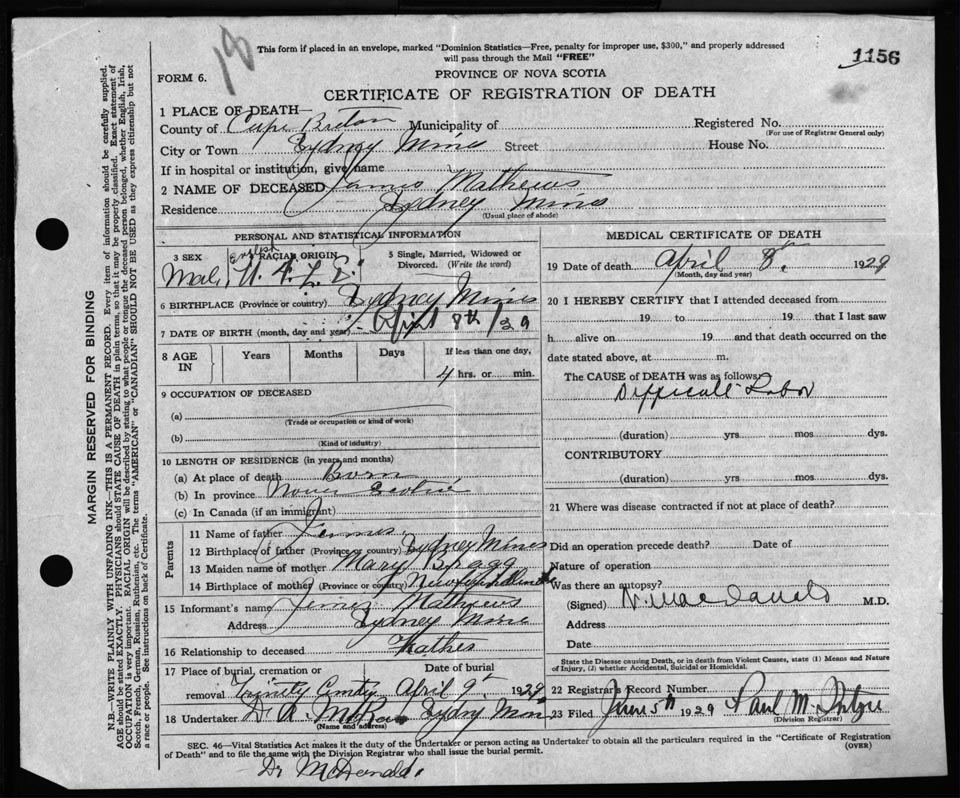 18
This form if placed in an envelope, marked "Dominion Statistics—Free, penalty for improper use, $300," and properly addressed
will pass through the Mail "FREE"
1156
FORM 6.
PROVINCE OF NOVA SCOTIA
CERTIFICATE OF REGISTRATION OF DEATH
1 PLACE OF DEATH—
County of Cape Breton Municipality of Registered No.
(For use of Registrar General only)
City or Town Sydney Mines Street House No.
If in hospital or institution, give name
2 NAME OF DECEASED James Mathews
Residence Sydney Mines
(Usual place of abode)
PERSONAL AND STATISTICAL INFORMATION
3 SEX 4 RACIAL ORIGIN 5 Single, Married, Widowed or Divorced. (Write the word)
Male English
6 BIRTHPLACE (Province or country) Sydney Mines
7 DATE OF BIRTH (month, day and year) April 8th/29
8 AGE IN Years Months Days If less than one day,
4 hrs. or min.
9 OCCUPATION OF DECEASED
(a)
(Trade or occupation or kind of work)
(b)
(Kind of industry)
10 LENGTH OF RESIDENCE (in years and months)
(a) At place of death Born
(b) In province Nova Scotia
(c) In Canada (if an immigrant)
Parents
11 Name of father James
12 Birthplace of father (Province or country) Sydney Mines
13 Maiden name of mother Mary Bragg
14 Birthplace of mother (Province or country) Newfoundland
15 Informant's name James Mathews
Address Sydney Mines
16 Relationship to deceased Father
17 Place of burial, cremation or Date of burial
removal Trinity Cemty April 9th 1929
18 Undertaker Sydney Mines
(Name and address)
MEDICAL CERTIFICATE OF DEATH
19 Date of death April 8th 1929
(Month, day and year)
20 I HEREBY CERTIFY that I attended deceased from
19 to 19 that I last saw
h alive on 19 and that death occurred on the
date stated above, at m.
The CAUSE OF DEATH was as follows:
Difficult Labor
(duration) yrs mos dys.
CONTRIBUTORY
(duration) yrs mos dys.
21 Where was disease contracted if not at place of death?
Did an operation precede death? Date of
Nature of operation
Was there an autopsy?
(Signed) N. MacDonald M.D.
Address
Date
State the Disease causing Death, or in death from Violent Causes, state (1) Means and Nature
of Injury, (2) whether Accidental, Suicidal or Homicidal.
22 Registrar's Record Number
23 Filed June 5th 1929 Paul
(Division Registrar)
SEC. 46—Vital Statistics Act makes it the duty of the Undertaker or person acting as Undertaker to obtain all the particulars required in the "Certificate of Registration
of Death" and to file the same with the Division Registrar who shall issue the burial permit.
(OVER)
Dr McDonald
MARGIN RESERVED FOR BINDING
N.B.—WRITE PLAINLY WITH UNFADING INK—THIS IS A PERMANENT RECORD. Every item of information should be carefully supplied.
AGE should be stated EXACTLY. PHYSICIANS should STATE CAUSE OF DEATH in plain terms, so that it may be properly classified. Exact statement of
OCCUPATION is very important. RACIAL ORIGIN will be described by stating to what people or tongue the deceased person belonged, whether English, Irish,
Scotch, French, German, Russian, Ruthenian, etc. The terms "AMERICAN" or "CANADIAN" SHOULD NOT BE USED as they express citizenship but not
a race or people. See instructions on back of Certificate.